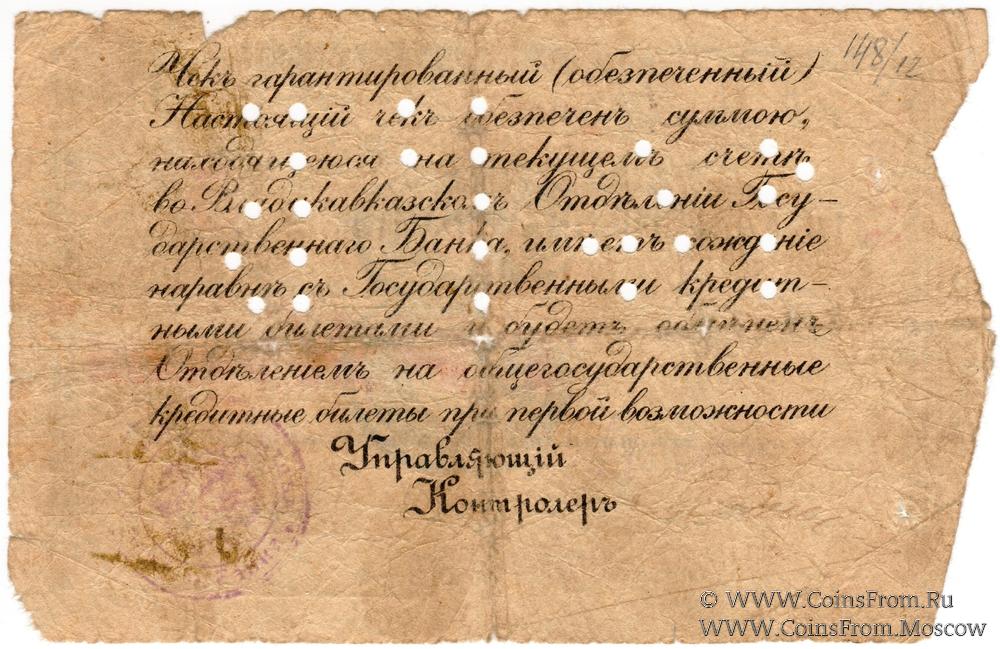 148/12
Чекъ гарантированный (обезпеченный)
Настоящій чекъ обезпечен суммою,
находящеюся на текущем счетѣ
во Владикавказскомъ Отдѣленіи Госу-
дарственнаго Банка, имѣетъ хожденіе
наравнѣ съ Государственными кредит-
ными билетами и будетъ обмѣненъ
Отдѣленіемъ на общегосударственные
кредитные билеты при первой возможности
Управляющій
Контролеръ
© WWW.CoinsFrom.Ru
WWW.CoinsFrom.Moscow